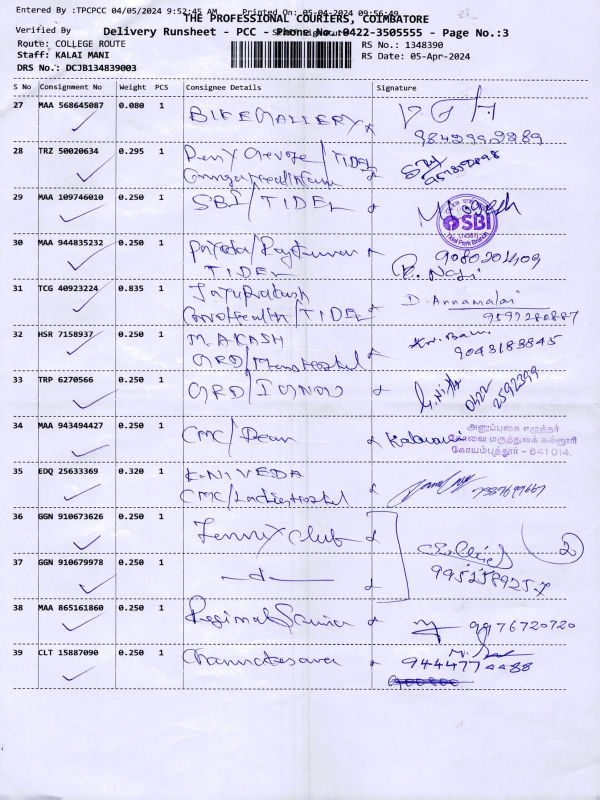 Entered By :TPCPCC 04/05/2024 9:52:45 AM Printed On :05-04-2024 09:56:49
THE PROFESSIONAL COURIERS, COIMBATORE
Verified By
Delivery Runsheet - PCC - Phone No.:0422-3505555 - Page No.:3
Route: COLLEGE ROUTE
RS No.: 1348390
Staff: KALAI MANI
RS Date: 05-Apr-2024
DRS No.: DCJB134839003
S No Consignment No Weight PCS Consignee Details Signature
27 MAA 568645087 0.080 1 BIKE GALLERY
28 TRZ 50020634 0.295 1 TIDEL
29 MAA 109746010 0.250 1 SBI/TIDEL
SBI
Tidal Park Branch
30 MAA 944835232 0.250 1 9080201409
TIDEL
31 TCG 40923224 0.835 1 Jayaprakash D. Annamalai
/TIDEL
32 HSR 7158937 0.250 1 M. AKASH
GRD/Mens Hostel 9043183845
33 TRP 6270566 0.250 1 GRD/IGNOU 0422 2592399
34 MAA 943494427 0.250 1 CMC/Dean
அனுப்புகை எழுத்தர்
கோவை மருத்துவக் கல்லூரி
கோயம்புத்தூர் - 641 014.
35 EDQ 25633369 0.320 1 K. NIVEDA
CMC/Ladies Hostel
36 GGN 910673626 0.250 1 Tennix Club 2
37 GGN 910679978 0.250 1 —d—
38 MAA 865161860 0.250 1 Regional Science 9976720720
39 CLT 15887090 0.250 1 9444774488